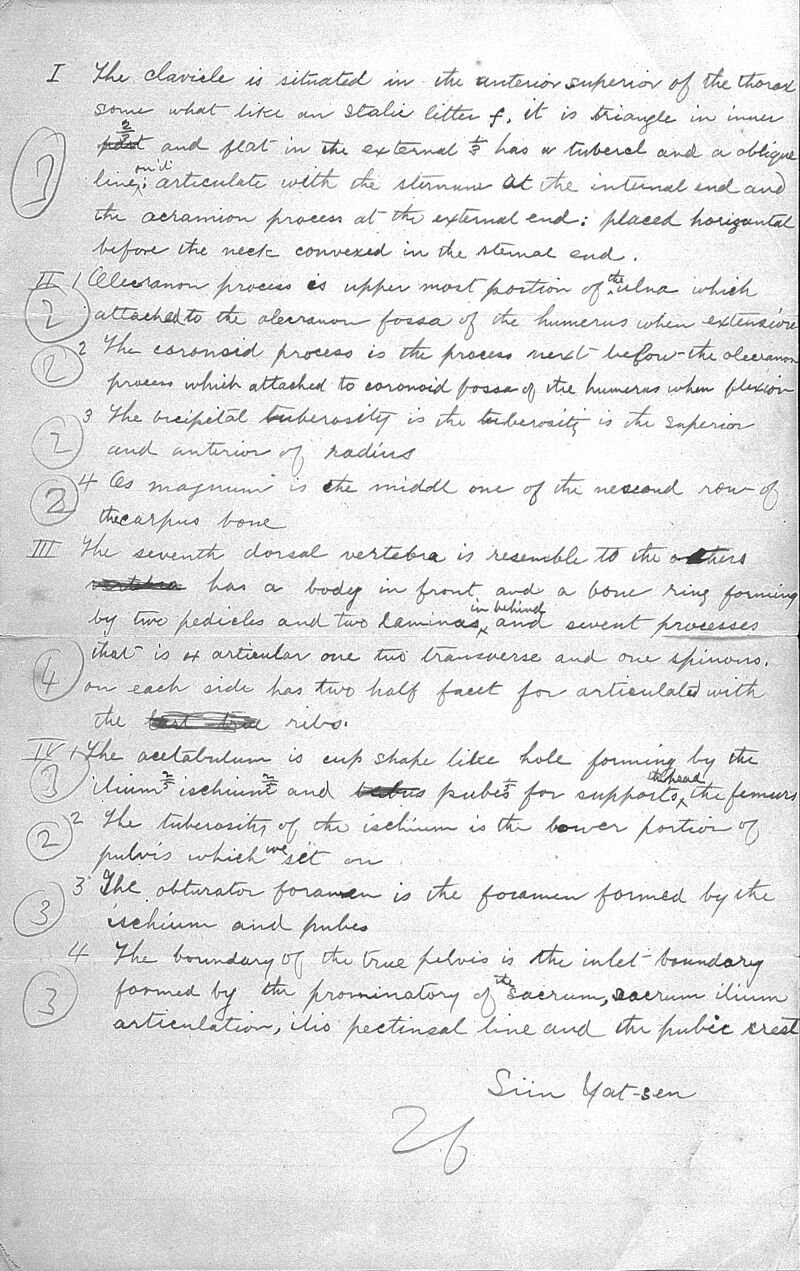 I The clavicle is situated in the anterior superior of the thorax
some what like an Italic litter f, it is triangle in inner
2/3 and flat in the external 1/3 has a tubercl and a oblique
line, articulate with the sternum at the internal end and
3
the acramion process at the external end; placed horizontal
before the neck convexed in the sternal end.
II 1 Olecranon process is upper most portion of the ulna which
2 attached to the olecranon fossa of the humerus when extension
2 The coronoid process is the process next before the olecranon
2 process which attached to coronoid fossa of the humerus when flexion
3 The bicipetal tuberosity is the tuberosity is the superior
2 and anterior of radius
4 Os magnum is the middl one of the second row of
2 the carpus bone
III The seventh dorsal vertebra is resemble to the others
has a body in front and a bone ring forming
by two pedicles and two laminas in behind, and sevent processes
that is 4 articular one two transverse and one spinous.
4 on each side has two half facet for articulated with
the ribs.
IV 1 The acetabulum is cup shape like hole forming by the
3 ilium 2/5 ischium 2/5 and pubes 1/5 for supports the head the femurs
2 The tuberosity of the ischium is the lower portion of
2 pulvis which we set on
3 The obturator foramen is the foramen formed by the
3 ischium and pubes
4 The boundary of the true pelvis is the inlet boundary
3 formed by the prominatory of the sacrum, sacrum ilium
articulation, ilio pectinsal line and the pubic crest
Sün Yat-sen
26